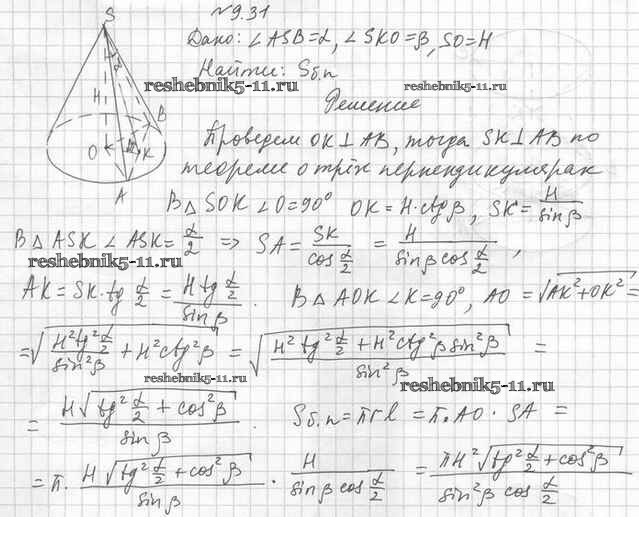 №9.31
S
Дано: ∠ASB=α, ∠SKO=β, SO=H
Найти: Sб.п
reshebnik5-11.ru
reshebnik5-11.ru
Решение
α
H
B
O
K
A
Проведем OK⊥AB, тогда SK⊥AB по
теореме о трёх перпендикулярах
В △ SOK ∠O=90° OK=H·ctgβ, SK=H/sinβ
В △ ASK ∠ASK=α/2 => SA=SK/cos α/2 = H/(sinβ cos α/2),
reshebnik5-11.ru
AK=SK·tg α/2 = (H tg α/2)/sinβ. В △ AOK ∠K=90°, AO=√(AK²+OK²)=
=√((H²tg² α/2)/sin²β + H²ctg²β) = √((H²tg² α/2 + H²ctg²β sin²β)/sin²β) =
reshebnik5-11.ru
reshebnik5-11.ru
= (H√(tg² α/2 + cos²β))/sinβ. Sб.п=πrl=π·AO·SA=
=π·(H√(tg² α/2 + cos²β))/sinβ · H/(sinβ cos α/2) = (πH²√(tg² α/2 + cos²β))/(sin²β cos α/2)